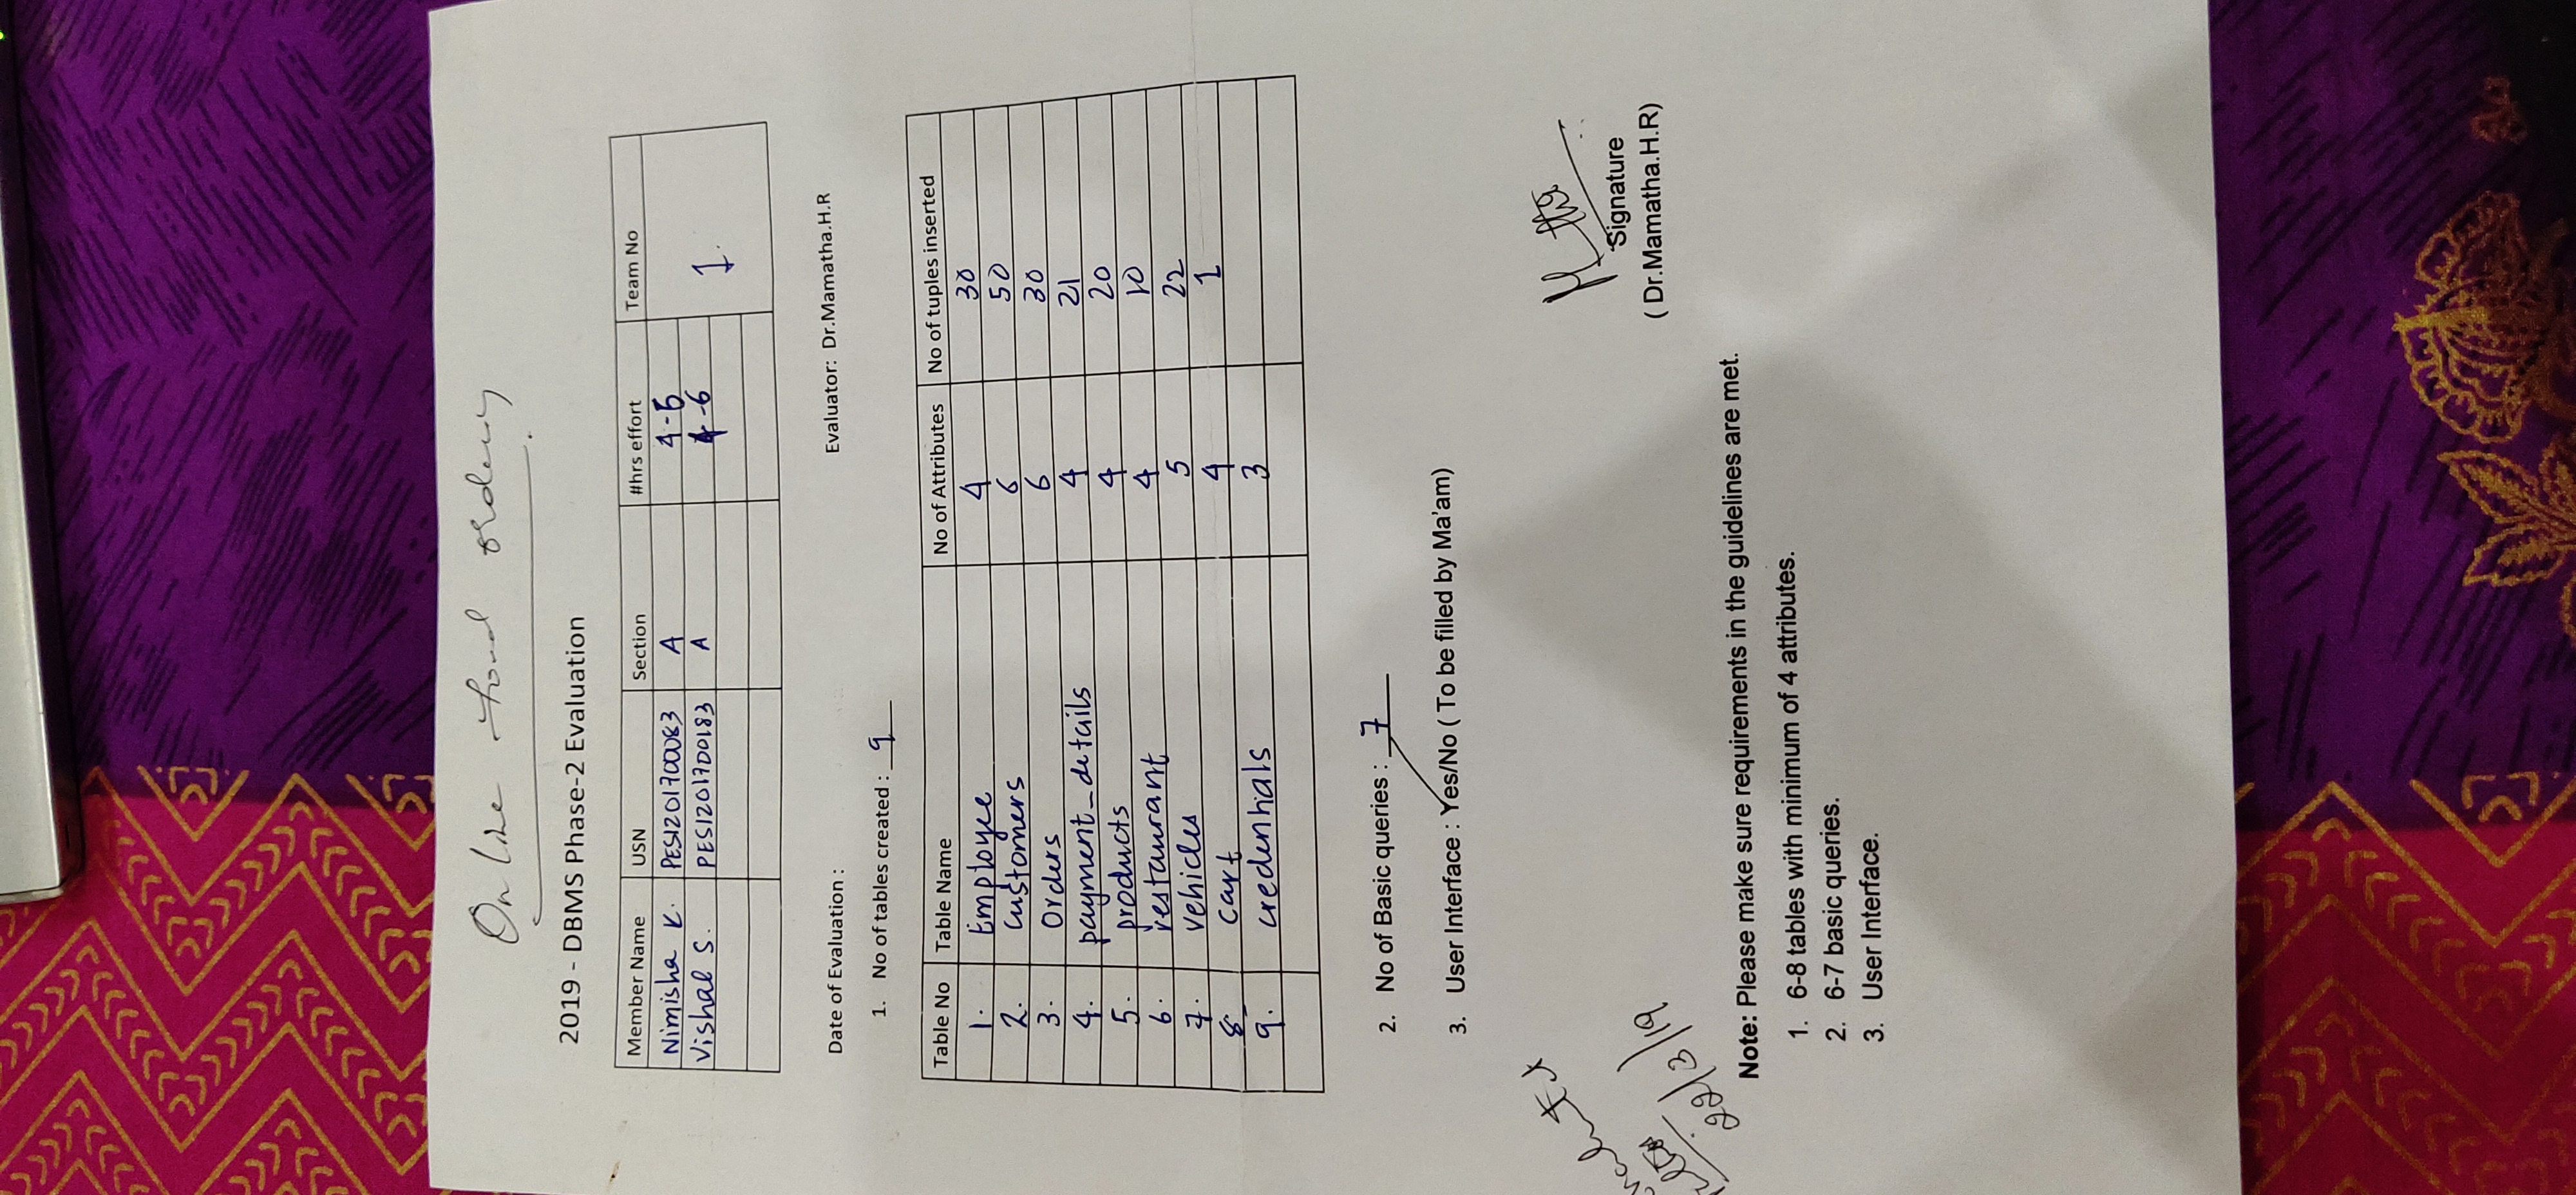 Online food ordering
2019 - DBMS Phase-2 Evaluation
Member Name USN Section #hrs effort Team No
Nimisha K. PES1201700083 A 4-5
Vishal S. PES1201700183 A 4-6
1.
Date of Evaluation : Evaluator: Dr.Mamatha.H.R
1. No of tables created : 9
Table No Table Name No of Attributes No of tuples inserted
1. Employee 4 30
2. customers 6 50
3. Orders 6 30
4. payment_details 4 21
5. products 4 20
6. restaurant 4 10
7. vehicles 5 22
8 cart 4 1
9. credentials 3
2. No of Basic queries : 7
3. User Interface : Yes/No ( To be filled by Ma'am)
22/3/19
Signature
( Dr.Mamatha.H.R)
Note: Please make sure requirements in the guidelines are met.
1. 6-8 tables with minimum of 4 attributes.
2. 6-7 basic queries.
3. User Interface.